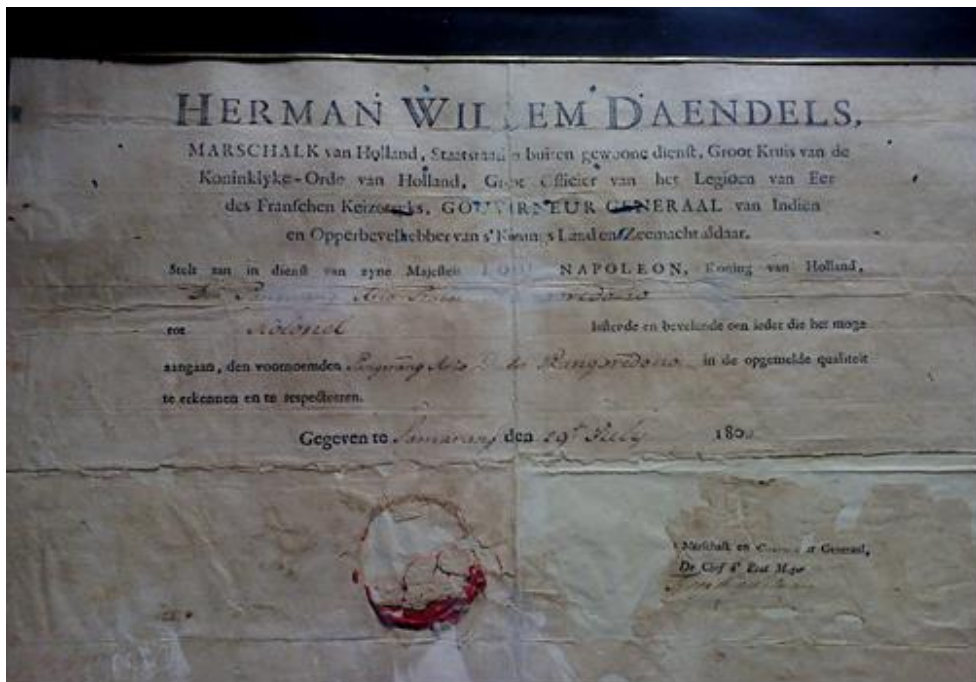 HERMAN WILLEM DAENDELS,
MARSCHALK van Holland, Staatsraad in buiten gewoone dienst, Groot Kruis van de
Koninklyke-Orde van Holland, Groot Officier van het Legioen van Eer
des Franschen Keizerryks, GOUVERNEUR GENERAAL van Indien
en Opperbevelhebber van s'Konings Land en Zeemacht aldaar.
Stelt aan in dienst van zyne Majesteit LODE NAPOLEON, Koning van Holland,
Den
tot Kolonel lasterde en bevelende een ieder die het moge
aangaan, den voornoemden in de opgemelde qualiteit
te erkennen en te respecteeren.
Gegeven te Samarang den 29t July 180
Marschalk en Generaal,
De Chef d' Etat Major